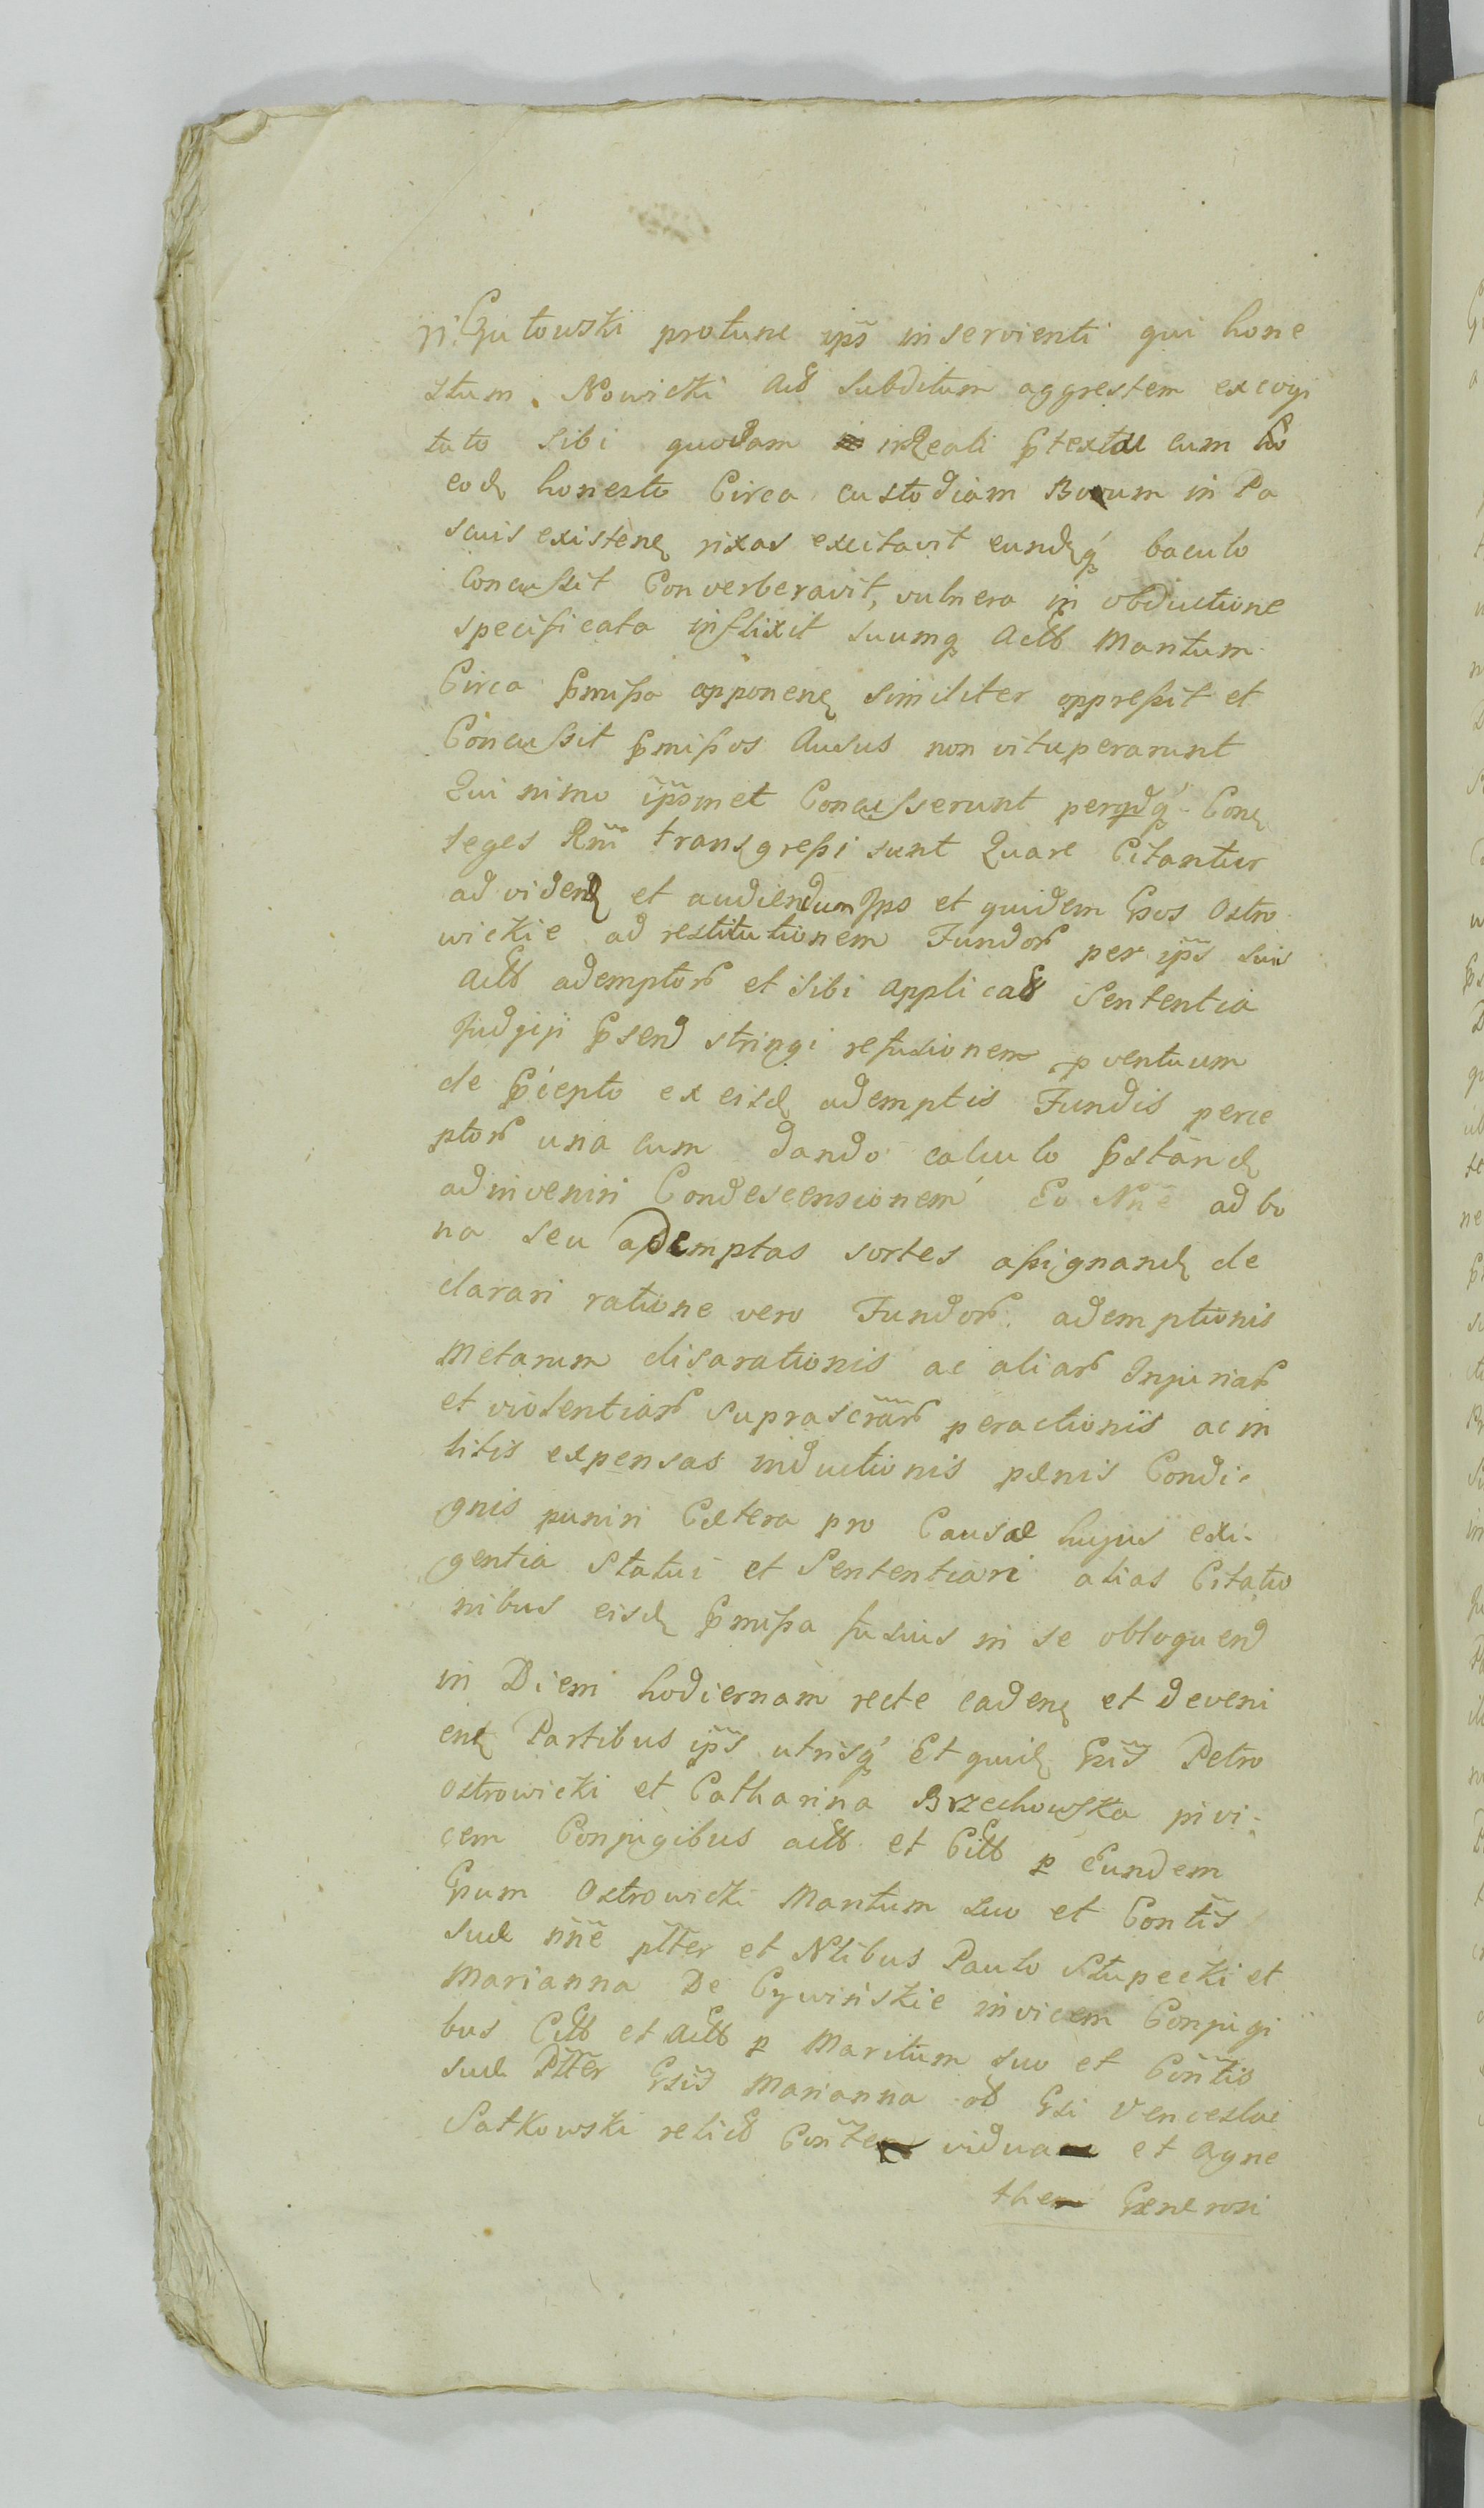 Gutowski protunc ips inservienti qui hone
stum Nowicki Act subditum aggrestem excogi
tato sibi quodam inReali ptextu cum
eod honesto Circa custodiam Bovum in Pa
scuis existene rixas excitavit eundq baculo
Concussit Converberavit, vulnera in obductione
specificata inflixit suumq Actt Maritum
Circa pmissa opponene similiter oppressit et
Concussit pmissos Ausus non vituperarunt
Quinimo ipsmet Concusserunt Con
leges Rni transgressi sunt Quare Citantur
ad vidend et audiendum Ips et quidem Gsos Ostro
wickie ad restitutionem Fundor per ips suis
Actt ademptor et sibi applicat Sententia
Judyiji psend stringi refusionem pventuum
de pcepto ex eisd ademptis Fundis perce
ptor una cum dando calculo pstand
adinveniri Condescensionem Eo Nne ad bo
na seu ademptas sortes assignand de
clarari ratione vero Fundor ademptionis
Metarum disarationis ac aliar Injuriar
et violentiar suprascrar peractionis ac in
litis expensas inductionis pænis Condi-
gnis puniri Cætera pro Causæ hujus exi-
gentia Statui et Sententiari alias Citatio
nibus eisd pmissa fusius in se obloquend
in Diem hodiernam recte cadene et deveni
ent Partibus ips utrisq Et quid Gsis Petro
Ostrowicki et Catharina Brzechowska invi-
cem Conjugibus actt et Citt p Eundem
Gsum Ostrowicki Maritum suo et Contis
suæ nne pltter et Nlibus Paulo Slupecki et
Marianna De Cywinskie invicem Conjugi
bus Citt et Actt p Maritum suo et Contis
suæ Pltter Gsis Marianna ol Gsi Venceslai
Satkowski relict Conte vidua et Agne
the Generosi